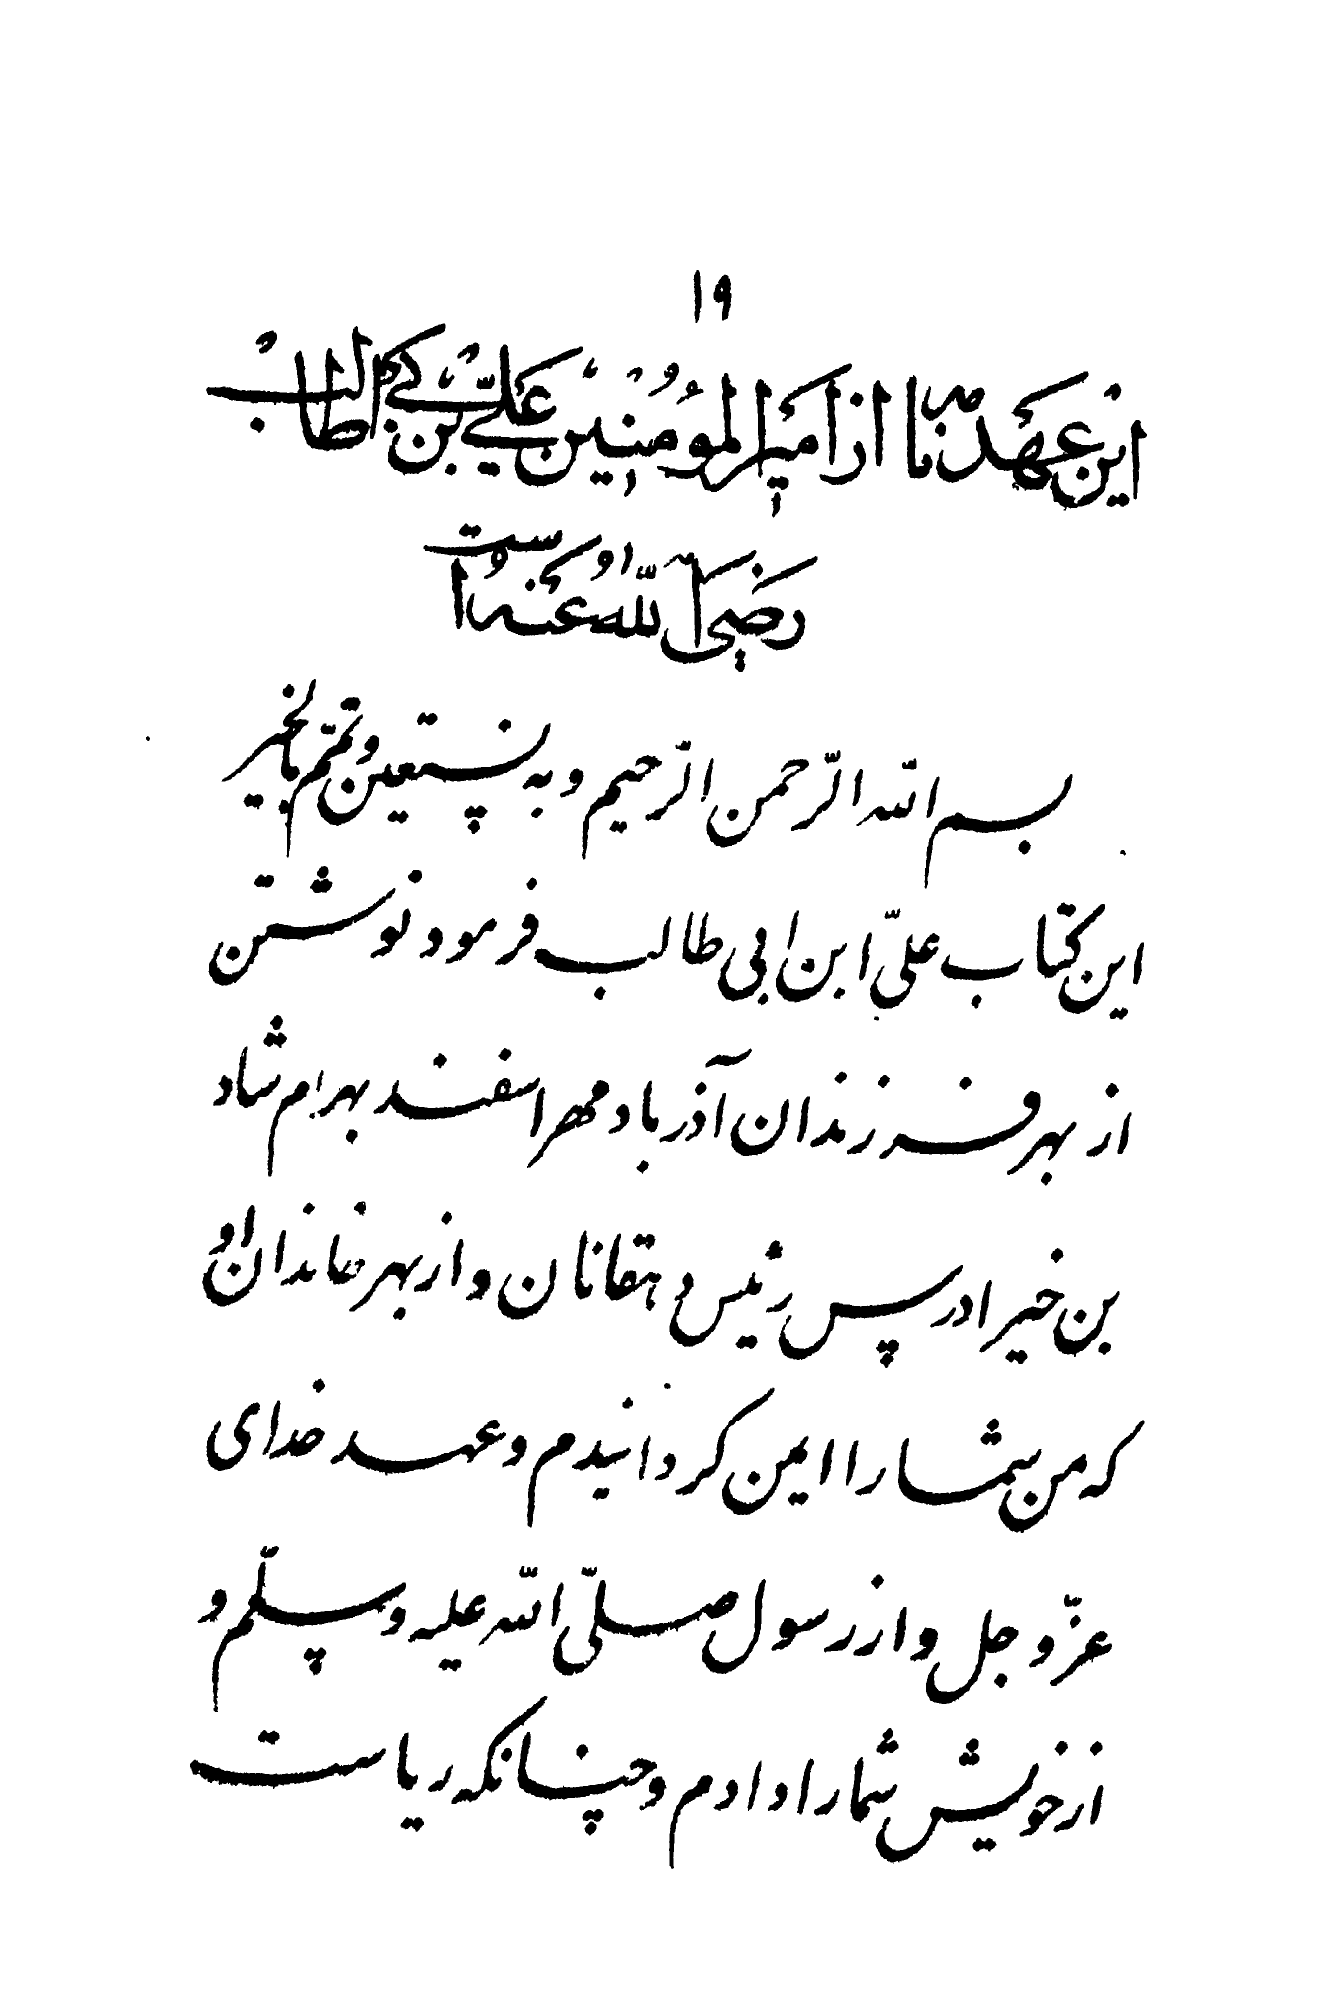 ۱۹
این عهد نا از امیر المؤمنین علی بن ابی طالب
رضی الله عنه است
بسم الله الرحمن الرحیم و به نستعین و تمم بالخیر
این کتاب علیّ ابن ابی طالب فرمود نوشتن
از بهر فرزندان آذرباد مهر اسفند بهرام شاد
بن خیرادرس رئیس دهقانان و از بهر خاندان او
که من شما را ایمن کردانیدم و عهد خدای
عزّ و جل و از رسول صلّی الله علیه و سلّم و
از خویش شمارا دادم و چنانکه ریاست